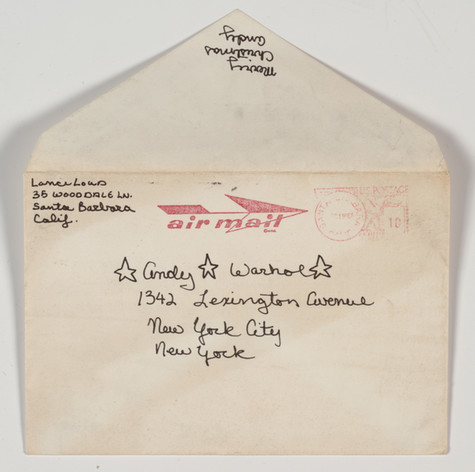 Merry
Christmas
Andy
Lance Loud
35 WOODALE LN.
Santa Barbara
Calif.
air mail
POSTAGE
10
Andy Warhol
1342 Lexington Avenue
New York City
New York